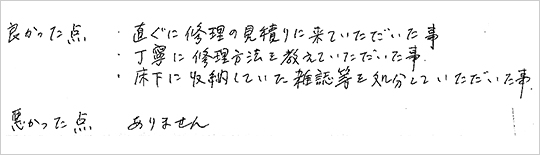 良かった点 ・直ぐに修理の見積りに来ていただいた事
・丁寧に修理方法を教えていただいた事
・床下に収納していた雑誌等を処分していただいた事
悪かった点 ありません